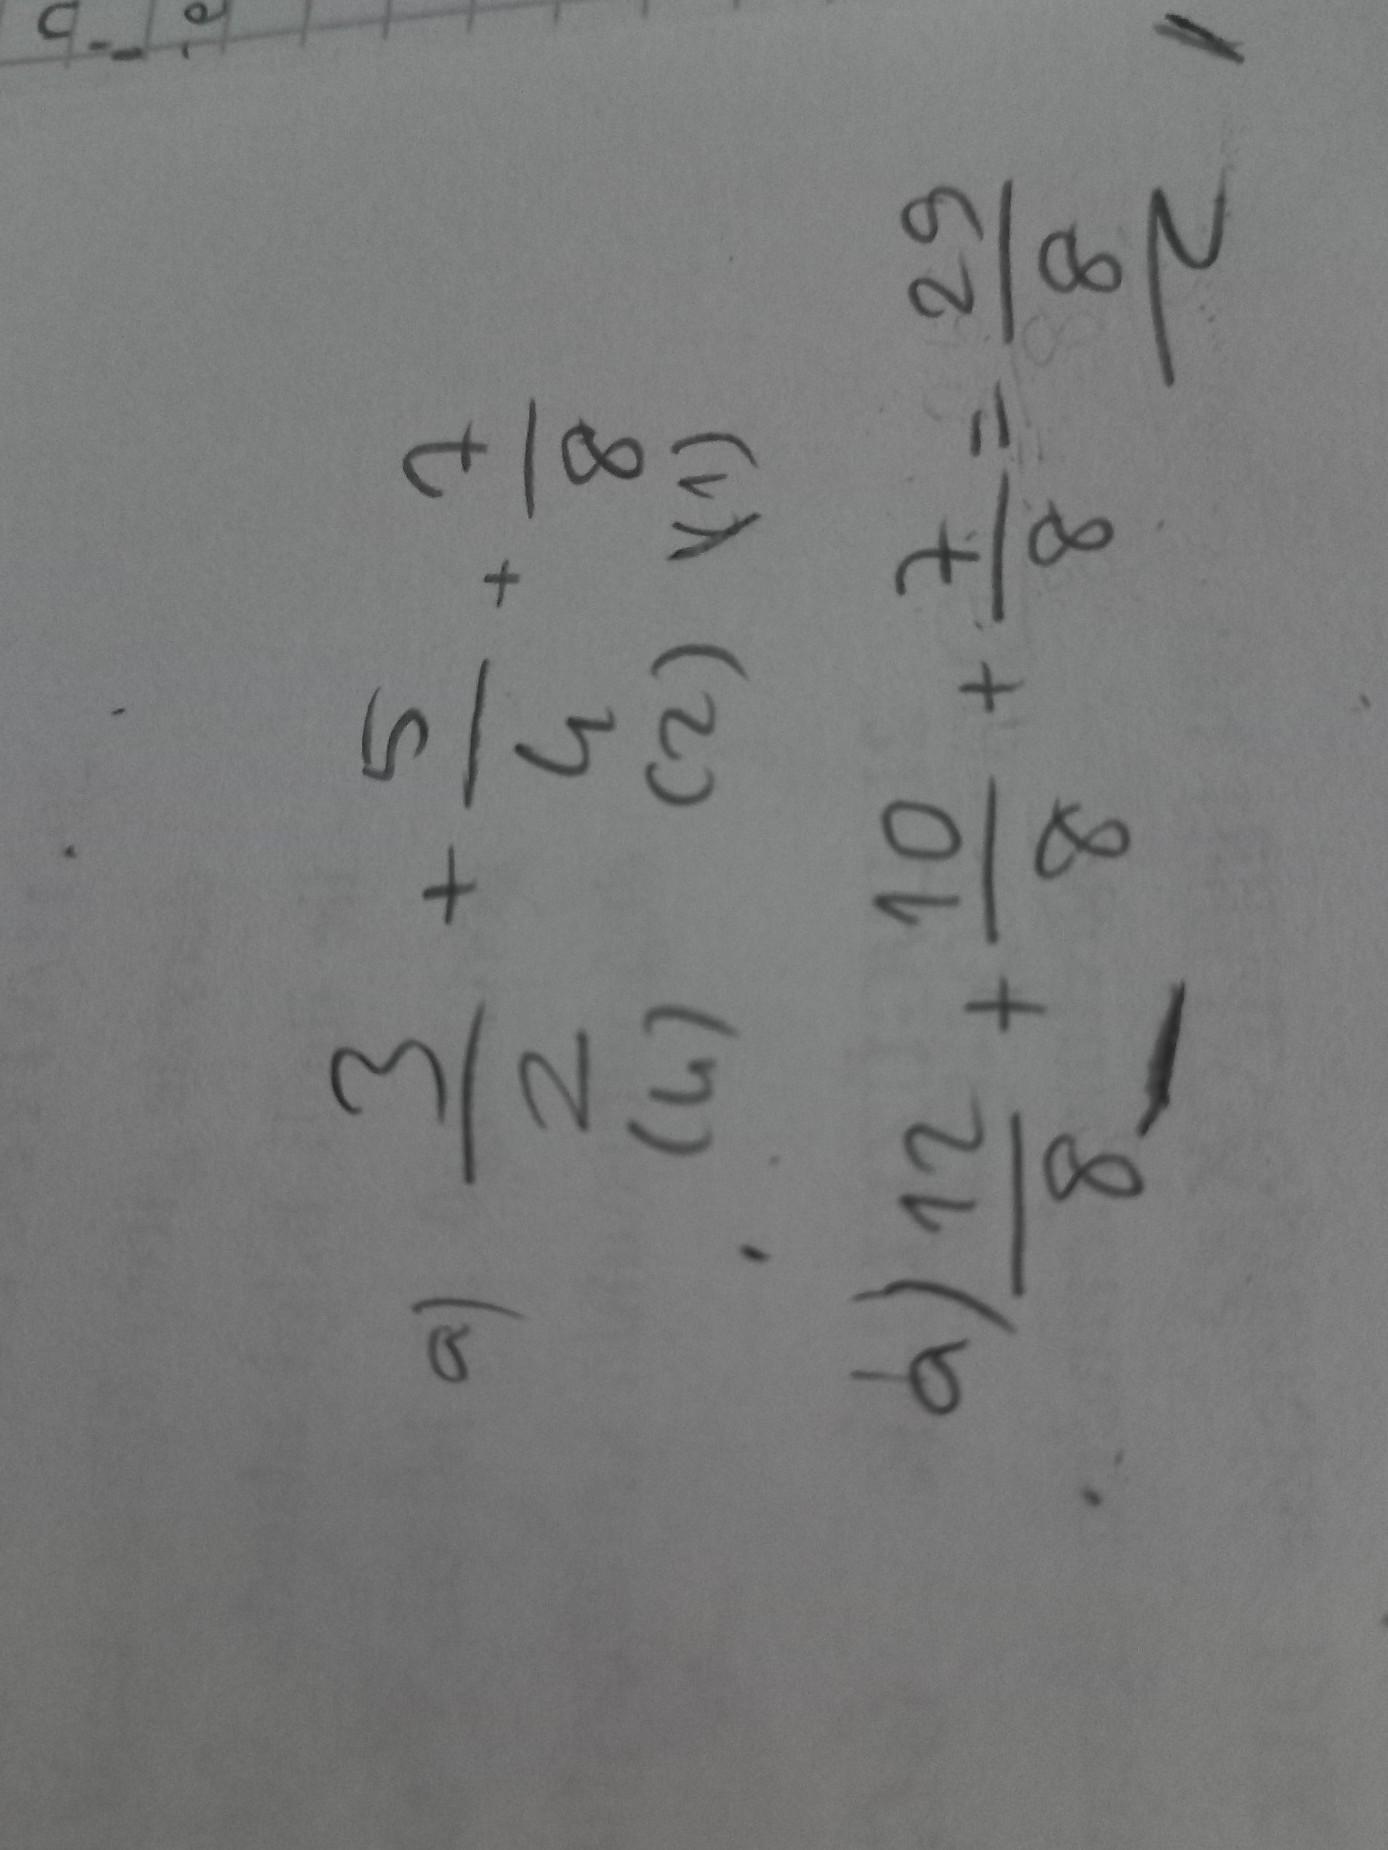 a) 3/2 + 5/4 + 7/8
(4) (2) (1)
a) 12/8 + 10/8 + 7/8 = 29/8